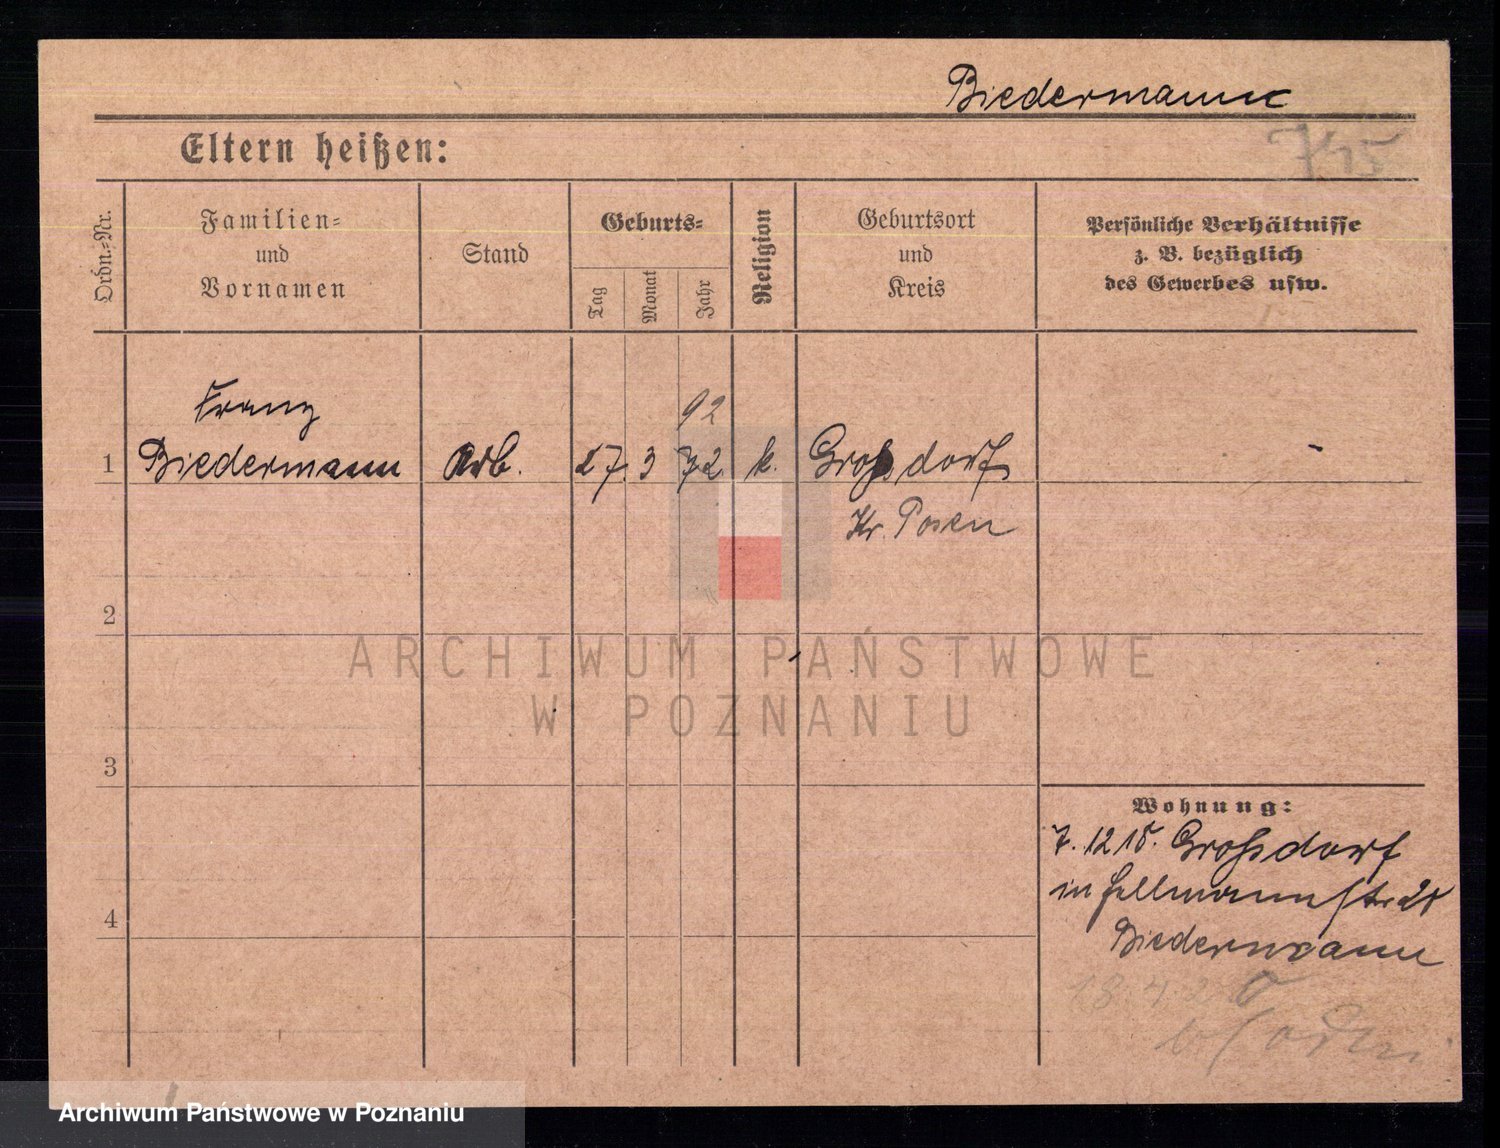 Biedermann
Eltern heißen:
Ordn.-Nr.
Familien-
und
Vornamen
Stand
Geburts-
Tag
Monat
Jahr
Religion
Geburtsort
und
Kreis
Persönliche Verhältnisse
z. B. bezüglich
des Gewerbes usw.
Franz
92
1 Biedermann Arb. 27. 3 72 k. Grossdorf -
Kr. Posen
2
ARCHIWUM PAŃSTWOWE
W POZNANIU
3
Wohnung:
7. 12 15. Grossdorf
in Hellmannstr 21
4
Biedermann
18 4 20
Archiwum Państwowe w Poznaniu